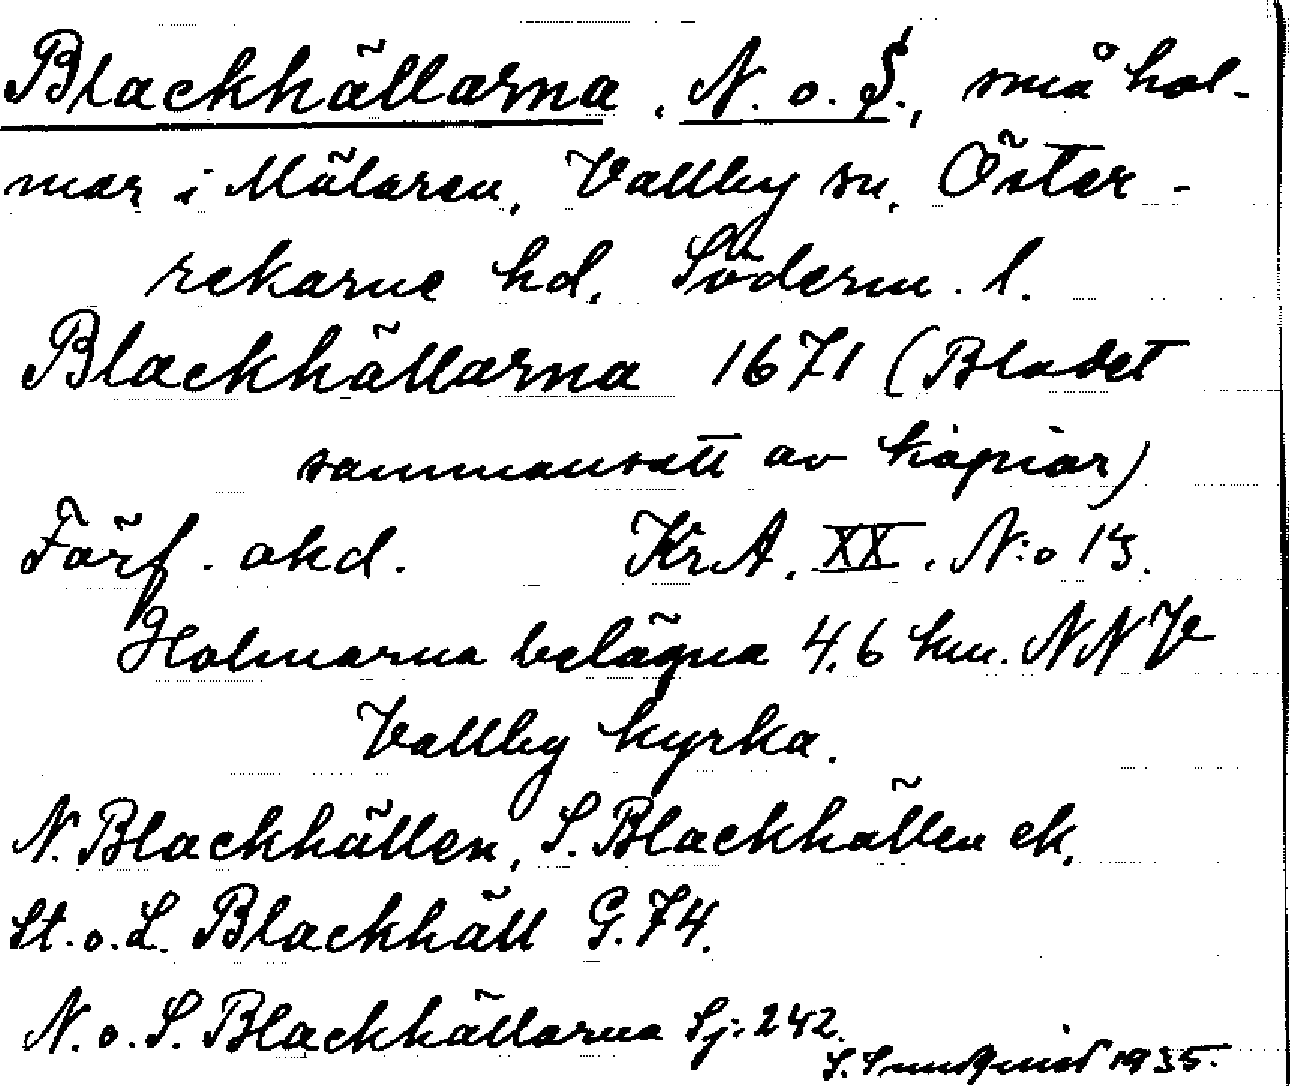 Blackhällarna, N. o. S., små hol-
mar i Mälaren, Vallby sn, Öster-
rekarne hd, Söderm. l.
Blackhällarna 1671 (Bladet
sammansatt av kopior)
Förf. okd. KrA. XX. N:o 13.
Holmarna belägna 4,6 km. NNV
Vallby kyrka.
N. Blackhällen, S. Blackhällen ek.
St. o. L. Blackhäll G. 74.
N. o. S. Blackhällarna Sj. 242.
S. Sundqvist 1935.